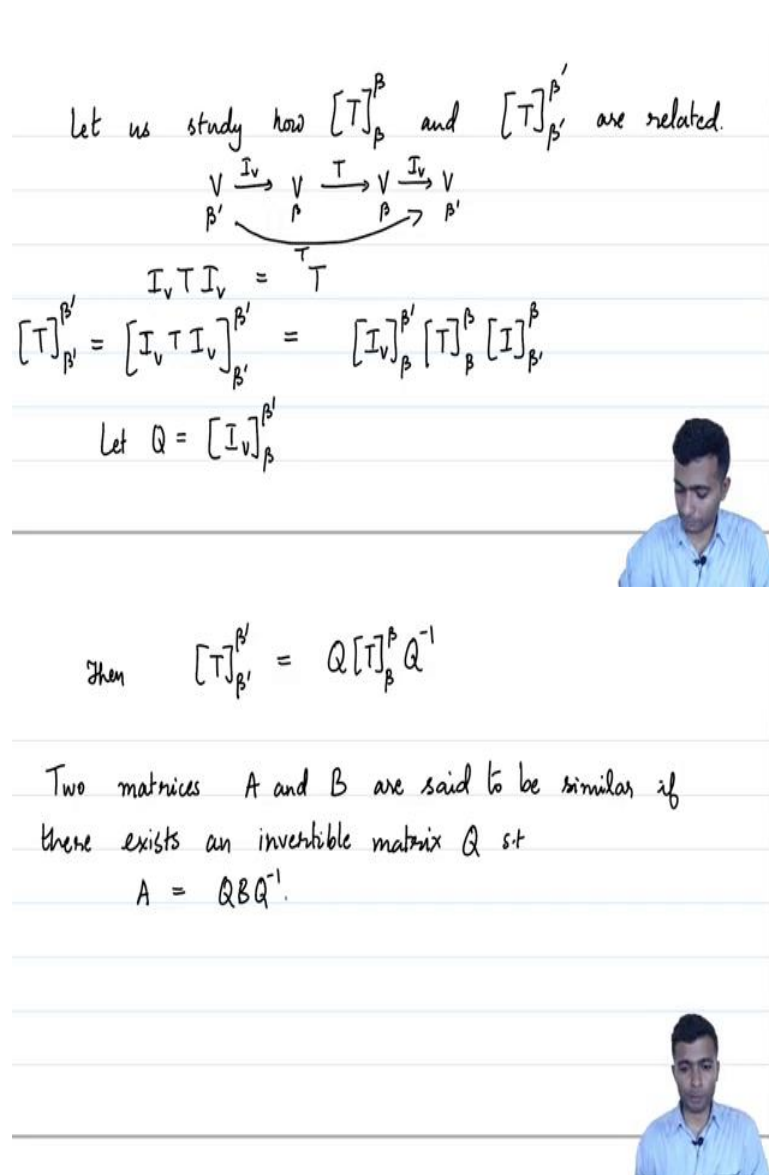 Let us study how [T]_β^β and [T]_β'^β' are related.
V →^{I_v} V →^{T} V →^{I_v} V
β' β β β'
T
I_v T I_v = T
[T]_β'^β' = [I_v T I_v]_β'^β' = [I_v]_β^β' [T]_β^β [I]_β'^β
Let Q = [I_v]_β^β'
Then [T]_β'^β' = Q [T]_β^β Q^{-1}
Two matrices A and B are said to be similar if
there exists an invertible matrix Q s.t
A = QBQ^{-1}.